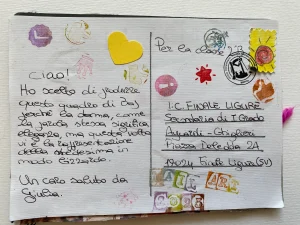 Ciao!
Ho scelto di produrre
questo quadro di
perché la dama, come
la parola stessa significa
eleganza, ma questa volta
vi è la rappresentazione
della stessa in
modo bizzarro.
Un caro saluto da
Giulia.
Per la classe 2B
I.C. FINALE LIGURE
Secondaria di I Grado
Aycardi - Ghiglieri
Piazza Deledda 2A
17024 Finale Ligure (SV)